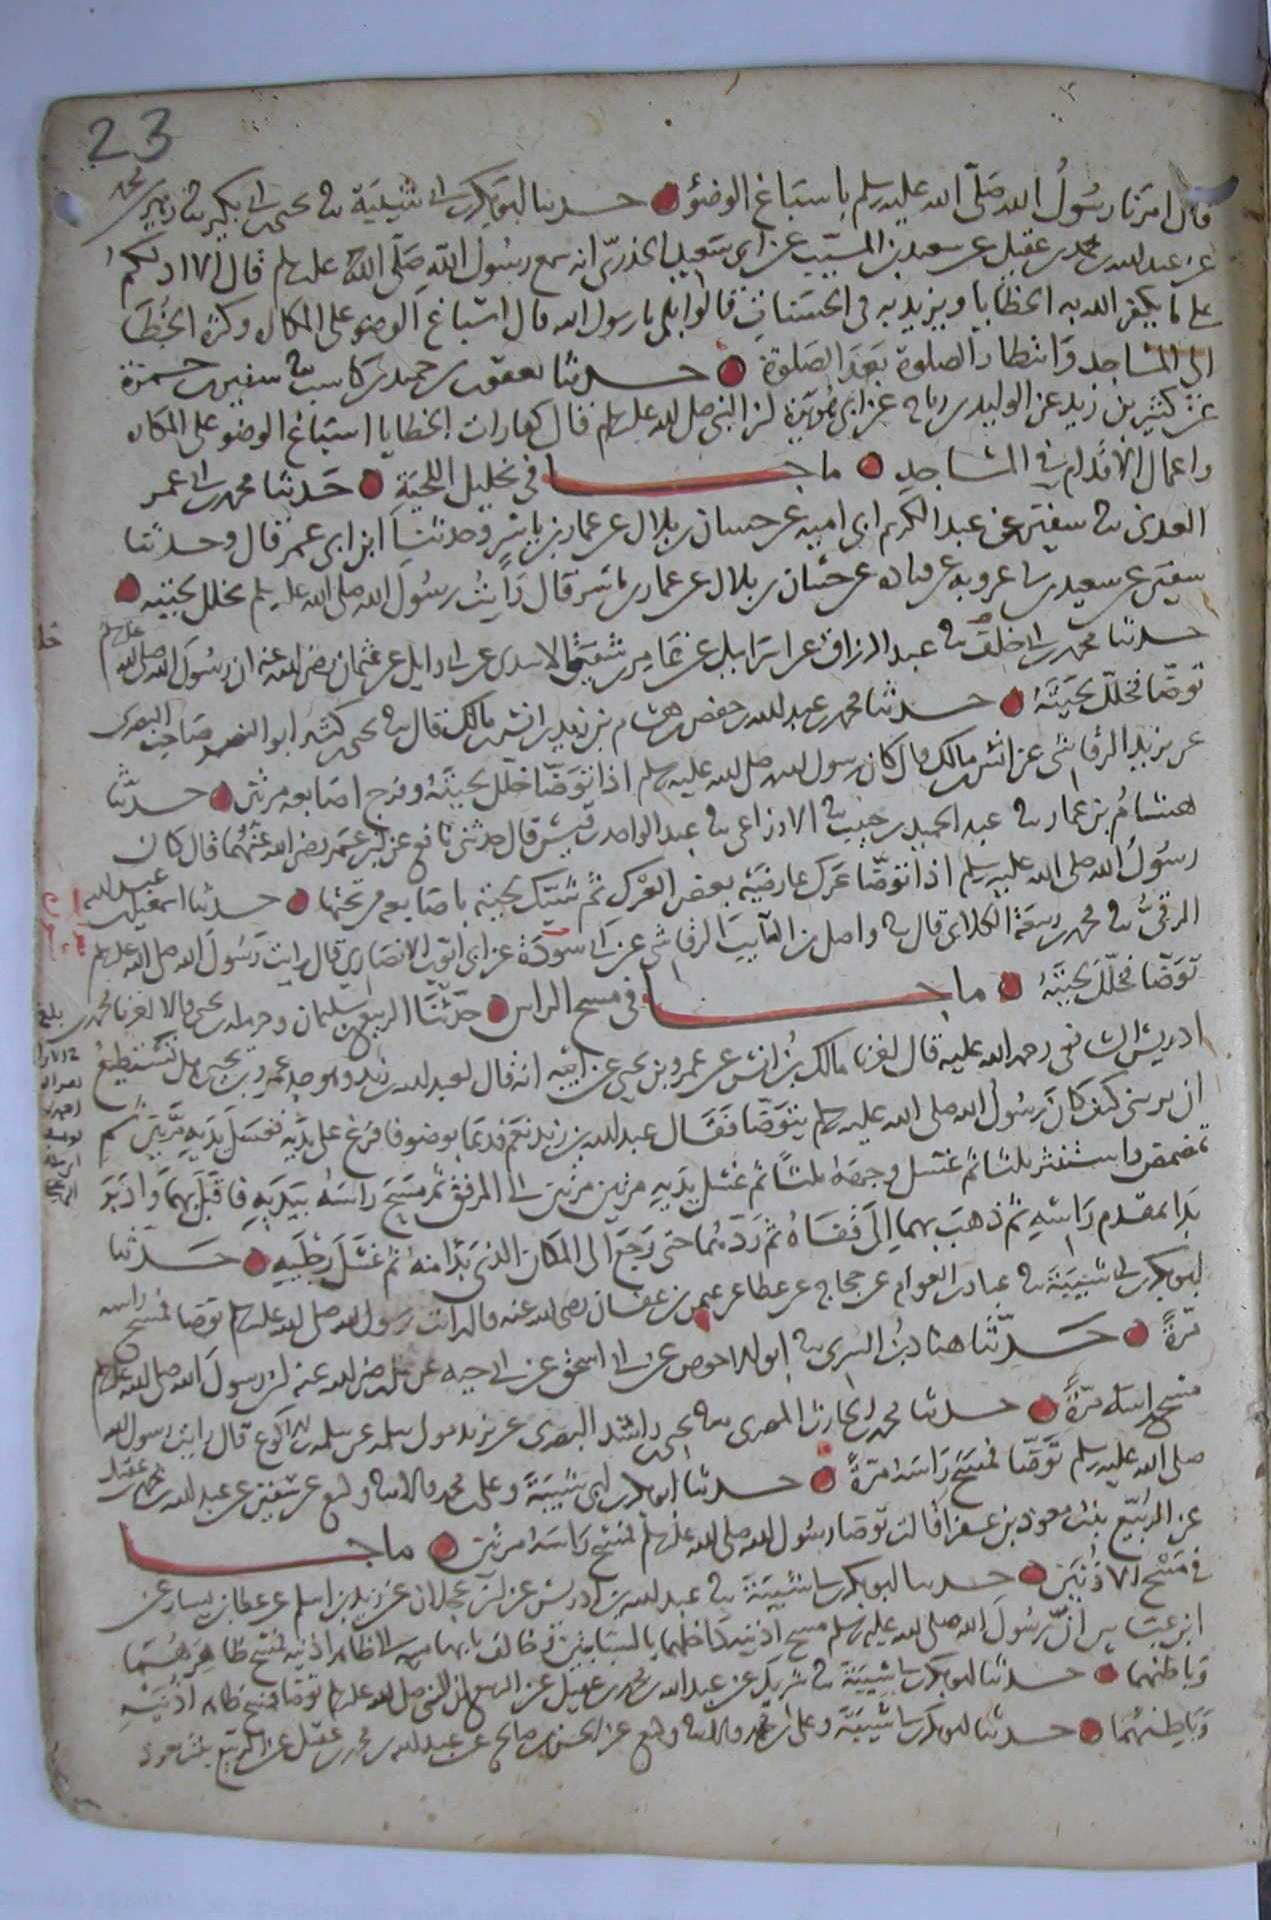 23
قال امرنا رسول الله صلى الله عليه وسلم باسباغ الوضوء حدثنا ابو بكر بن ابي شيبة ثنا يحيى بن ابي بكير ثنا زهير بن محمد
عن عبد الله بن محمد بن عقيل عن سعيد بن المسيب عن ابي سعيد الخدري انه سمع رسول الله صلى الله عليه وسلم قال الا ادلكم
على ما يكفر الله به الخطايا ويزيد به في الحسنات قالوا بلى يا رسول الله قال اسباغ الوضوء على المكاره وكثرة الخطا
الى المساجد وانتظار الصلوة بعد الصلوة حدثنا يعقوب بن حميد بن كاسب ثنا سفين بن حمزة
عن كثير بن زيد عن الوليد بن رباح عن ابي هريرة ان النبي صلى الله عليه وسلم قال كفارات الخطايا اسباغ الوضو على المكاره
واعمال الاقدام في المساجد ما جا في تخليل اللحية حدثنا محمد بن ابي عمر
العدني ثنا سفين عن عبد الكريم ابي امية عن حسان بن بلال عن عمار بن ياسر وحدثنا ابن ابي عمر قال وحدثنا
سفين عن سعيد بن ابي عروبه عن قتاده عن حسان بن بلال عن عمار بن ياسر قال رايت رسول الله صلى الله عليه وسلم يخلل لحيته
حدثنا محمد بن ابي خلف ثنا عبد الرزاق عن اسرائيل عن عامر بن شقيق الاسدي عن ابي وايل عن عثمان رضي الله عنه ان رسول الله صلى الله عليه وسلم
توضا فخلل لحيته حدثنا محمد بن عبد الله بن حفص بن هشام بن زيد بن انس بن مالك قال ثنا يحيى بن كثير ابو النضر صاحب البصرى
عن يزيد الرقاشي عن انس بن مالك قال كان رسول الله صلى الله عليه وسلم اذا توضا خلل لحيته وفرج اصابعه مرتين حدثنا
هشام بن عمار ثنا عبد الحميد بن حبيب ثنا الاوزاعي ثنا عبد الواحد بن قيس قال حدثني نافع عن ابن عمر رضي الله عنهما قال كان
رسول الله صلى الله عليه وسلم اذا توضا عرك عارضيه بعض العرك ثم شبك لحيته باصابعه من تحتها حدثنا اسمعيل بن عبد الله
الرقي ثنا محمد بن ربيعة الكلابي قال ثنا واصل بن السايب الرقاشي عن ابي سودة عن ابي ايوب الانصاري قال رايت رسول الله صلى الله عليه وسلم
توضا فخلل لحيته ما جا في مسح الراس حدثنا الربيع بن سليمان وحرملة بن يحيى قالا اخبرنا محمد بن
ادريس الشافعي رحمه الله عليه قال اخبرنا مالك بن انس عن عمرو بن يحيى عن ابيه انه قال لعبد الله بن زيد وهو جد عمرو بن يحيى هل تستطيع
ان تريني كيف كان رسول الله صلى الله عليه وسلم يتوضا فقال عبد الله بن زيد نعم فدعا بوضو فافرغ على يديه فغسل يديه مرتين ثم
تمضمض واستنثر ثلاثا ثم غسل وجهه ثلاثا ثم غسل يديه مرتين مرتين الى المرفق ثم مسح راسه بيديه فاقبل بهما وادبر
بدا بمقدم راسه ثم ذهب بهما الى قفاه ثم ردهما حتى رجع الى المكان الذي بدا منه ثم غسل رجليه حدثنا
ابو بكر بن ابي شيبة ثنا عباد بن العوام عن حجاج عن عطا عن عثمن بن عفان رضي الله عنه قال رايت رسول الله صلى الله عليه وسلم توضا فمسح راسه
مرة حدثنا هناد بن السري ثنا ابو الاحوص عن ابي اسحق عن ابي حيه عن علي رضي الله عنه ان رسول الله صلى الله عليه وسلم
مسح راسه مرة حدثنا محمد بن الحارث المصري ثنا يحيى بن راشد البصري عن يزيد مولى سلمه عن سلمه بن الاكوع قال رايت رسول الله
صلى الله عليه وسلم توضا فمسح راسه مرة حدثنا ابو بكر بن ابي شيبة وعلي بن محمد قالا ثنا وكيع عن سفين عن عبد الله بن محمد بن عقيل
عن الربيع بنت معوذ بن عفرا قالت توضا رسول الله صلى الله عليه وسلم فمسح راسه مرتين ما جا
في مسح الاذنين حدثنا ابو بكر بن ابي شيبة ثنا عبد الله بن ادريس عن ابن عجلان عن زيد بن اسلم عن عطا بن يسار عن
ابن عباس ان رسول الله صلى الله عليه وسلم مسح اذنيه داخلهما بالسبابتين وخالف بابهاميه الى ظاهر اذنيه فمسح ظاهرهما
وباطنهما حدثنا ابو بكر بن ابي شيبة ثنا شريك عن عبد الله بن محمد بن عقيل عن الربيع ان النبي صلى الله عليه وسلم توضا فمسح ظاهر اذنيه
وباطنهما حدثنا ابو بكر بن ابي شيبة وعلي بن محمد قالا ثنا وكيع عن الحسن بن صالح عن عبد الله بن محمد بن عقيل عن الربيع بنت معوذ